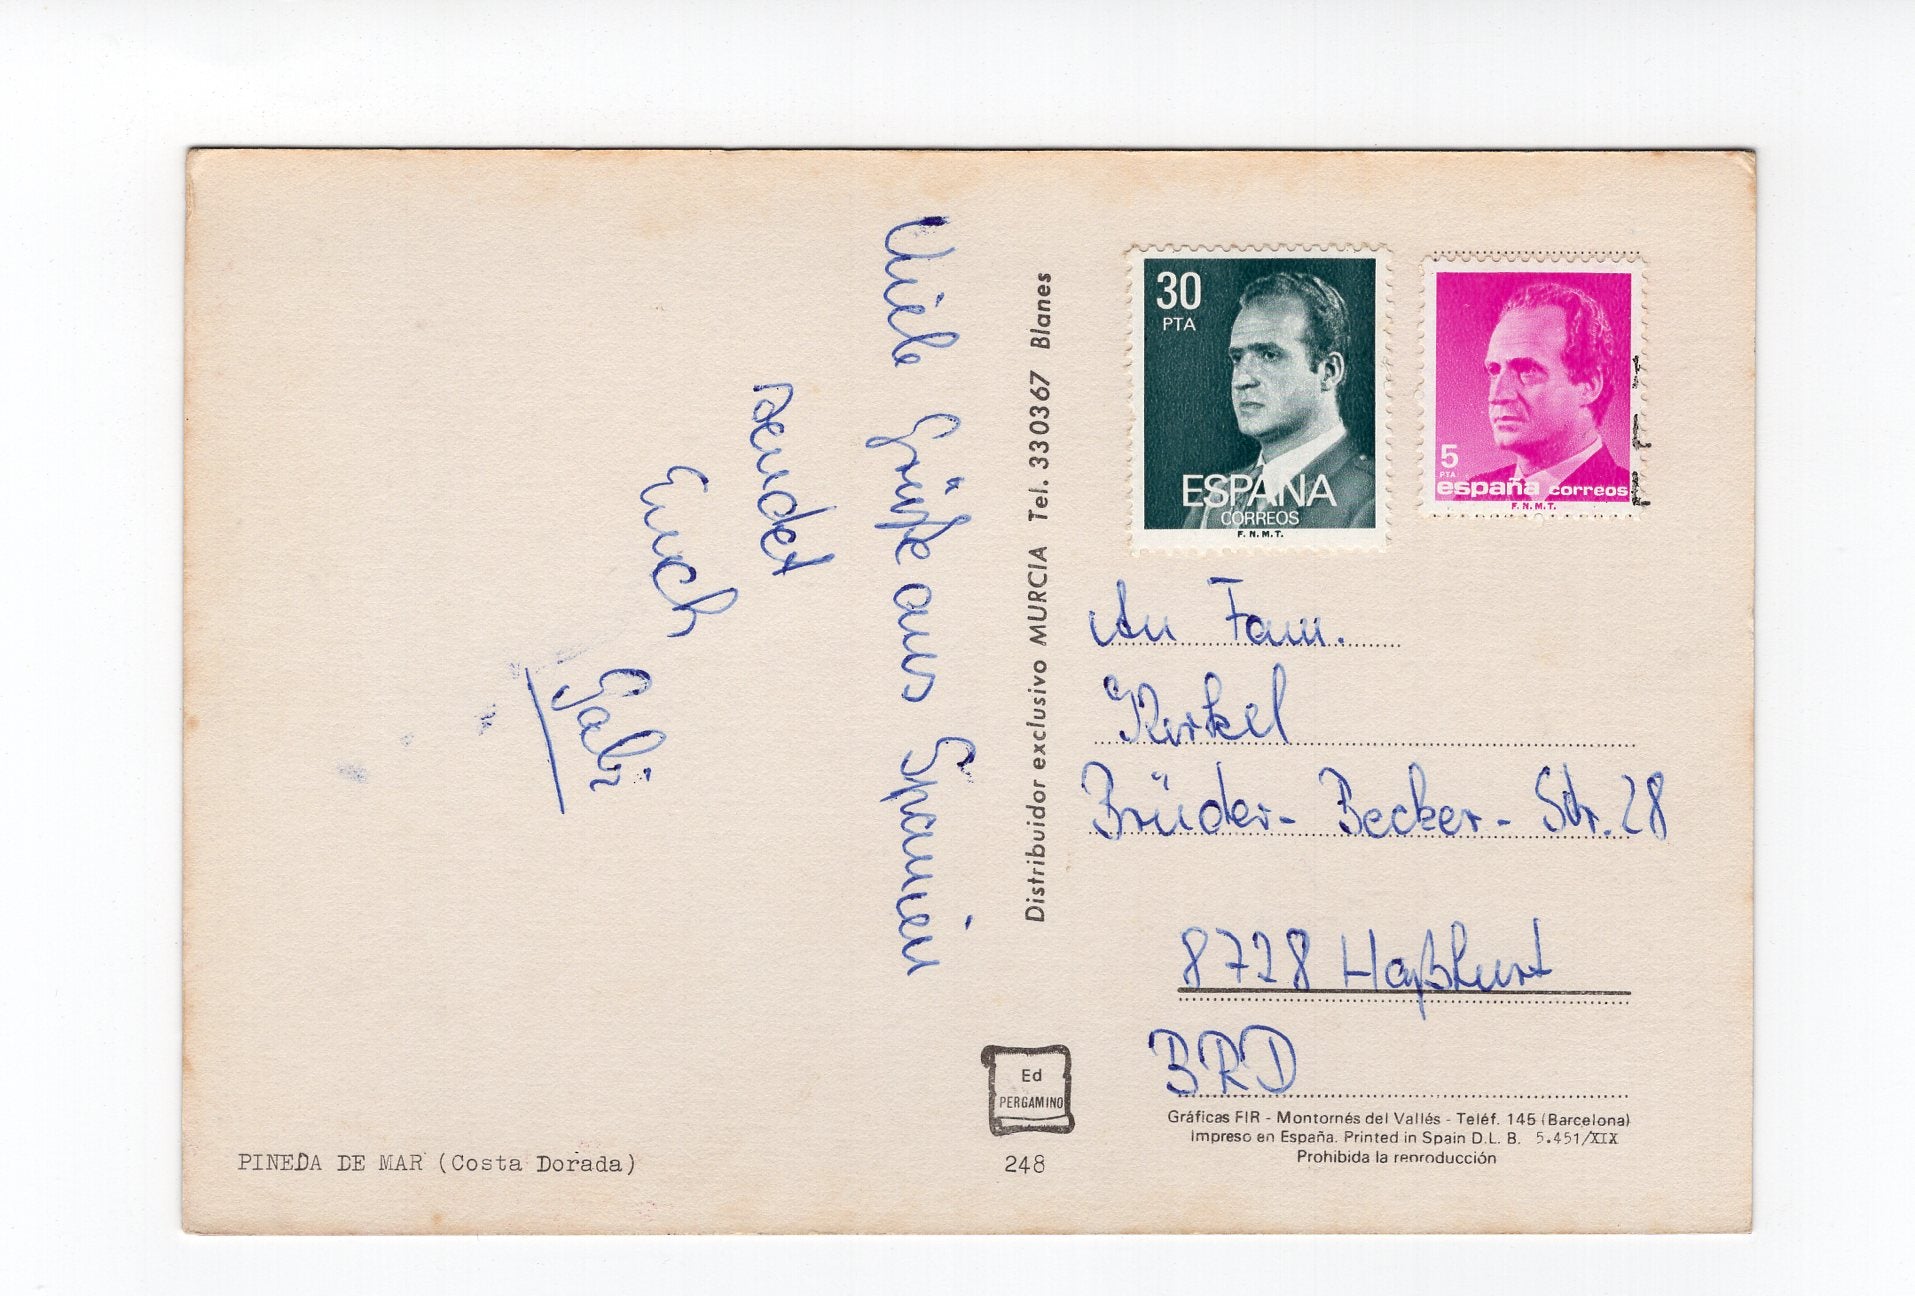 Viele Grüße aus Spanien
sendet
Euch
Gabi
Distribuidor exclusivo MURCIA Tel. 330367 Blanes
30
PTA
ESPAÑA
CORREOS
F.N.M.T.
5
PTA
españa correos
F.N.M.T.
An Fam.
Kirkel
Brüder-Becker-Str. 28
8728 Haßfurt
BRD
Ed
PERGAMINO
Gráficas FIR - Montornés del Vallés - Teléf. 145 (Barcelona)
Impreso en España. Printed in Spain D.L. B. 5.451/XIX
Prohibida la reproducción
PINEDA DE MAR (Costa Dorada)
248